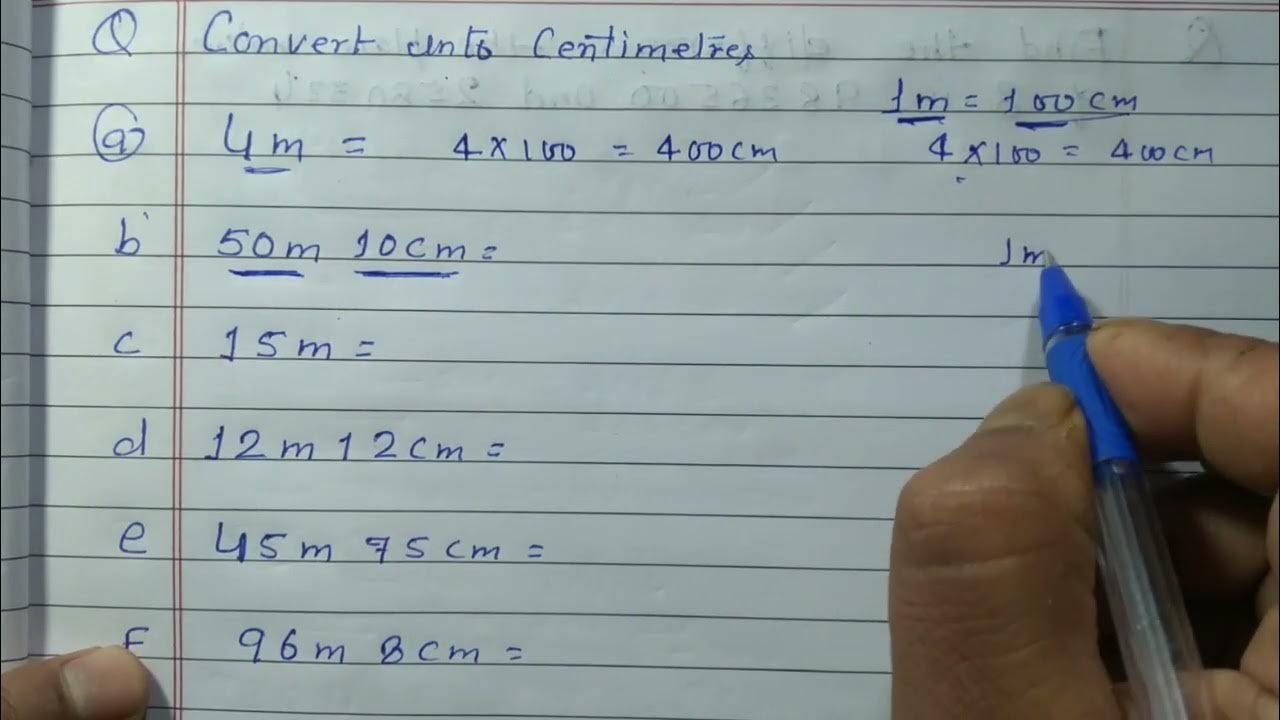 Q Convert into Centimetres
1m = 100 cm
a 4m = 4 × 100 = 400 cm 4 × 100 = 400 cm
b 50m 10cm = 1m
c 15m =
d 12m 12cm =
e 45m 75cm =
f 96m 8cm =